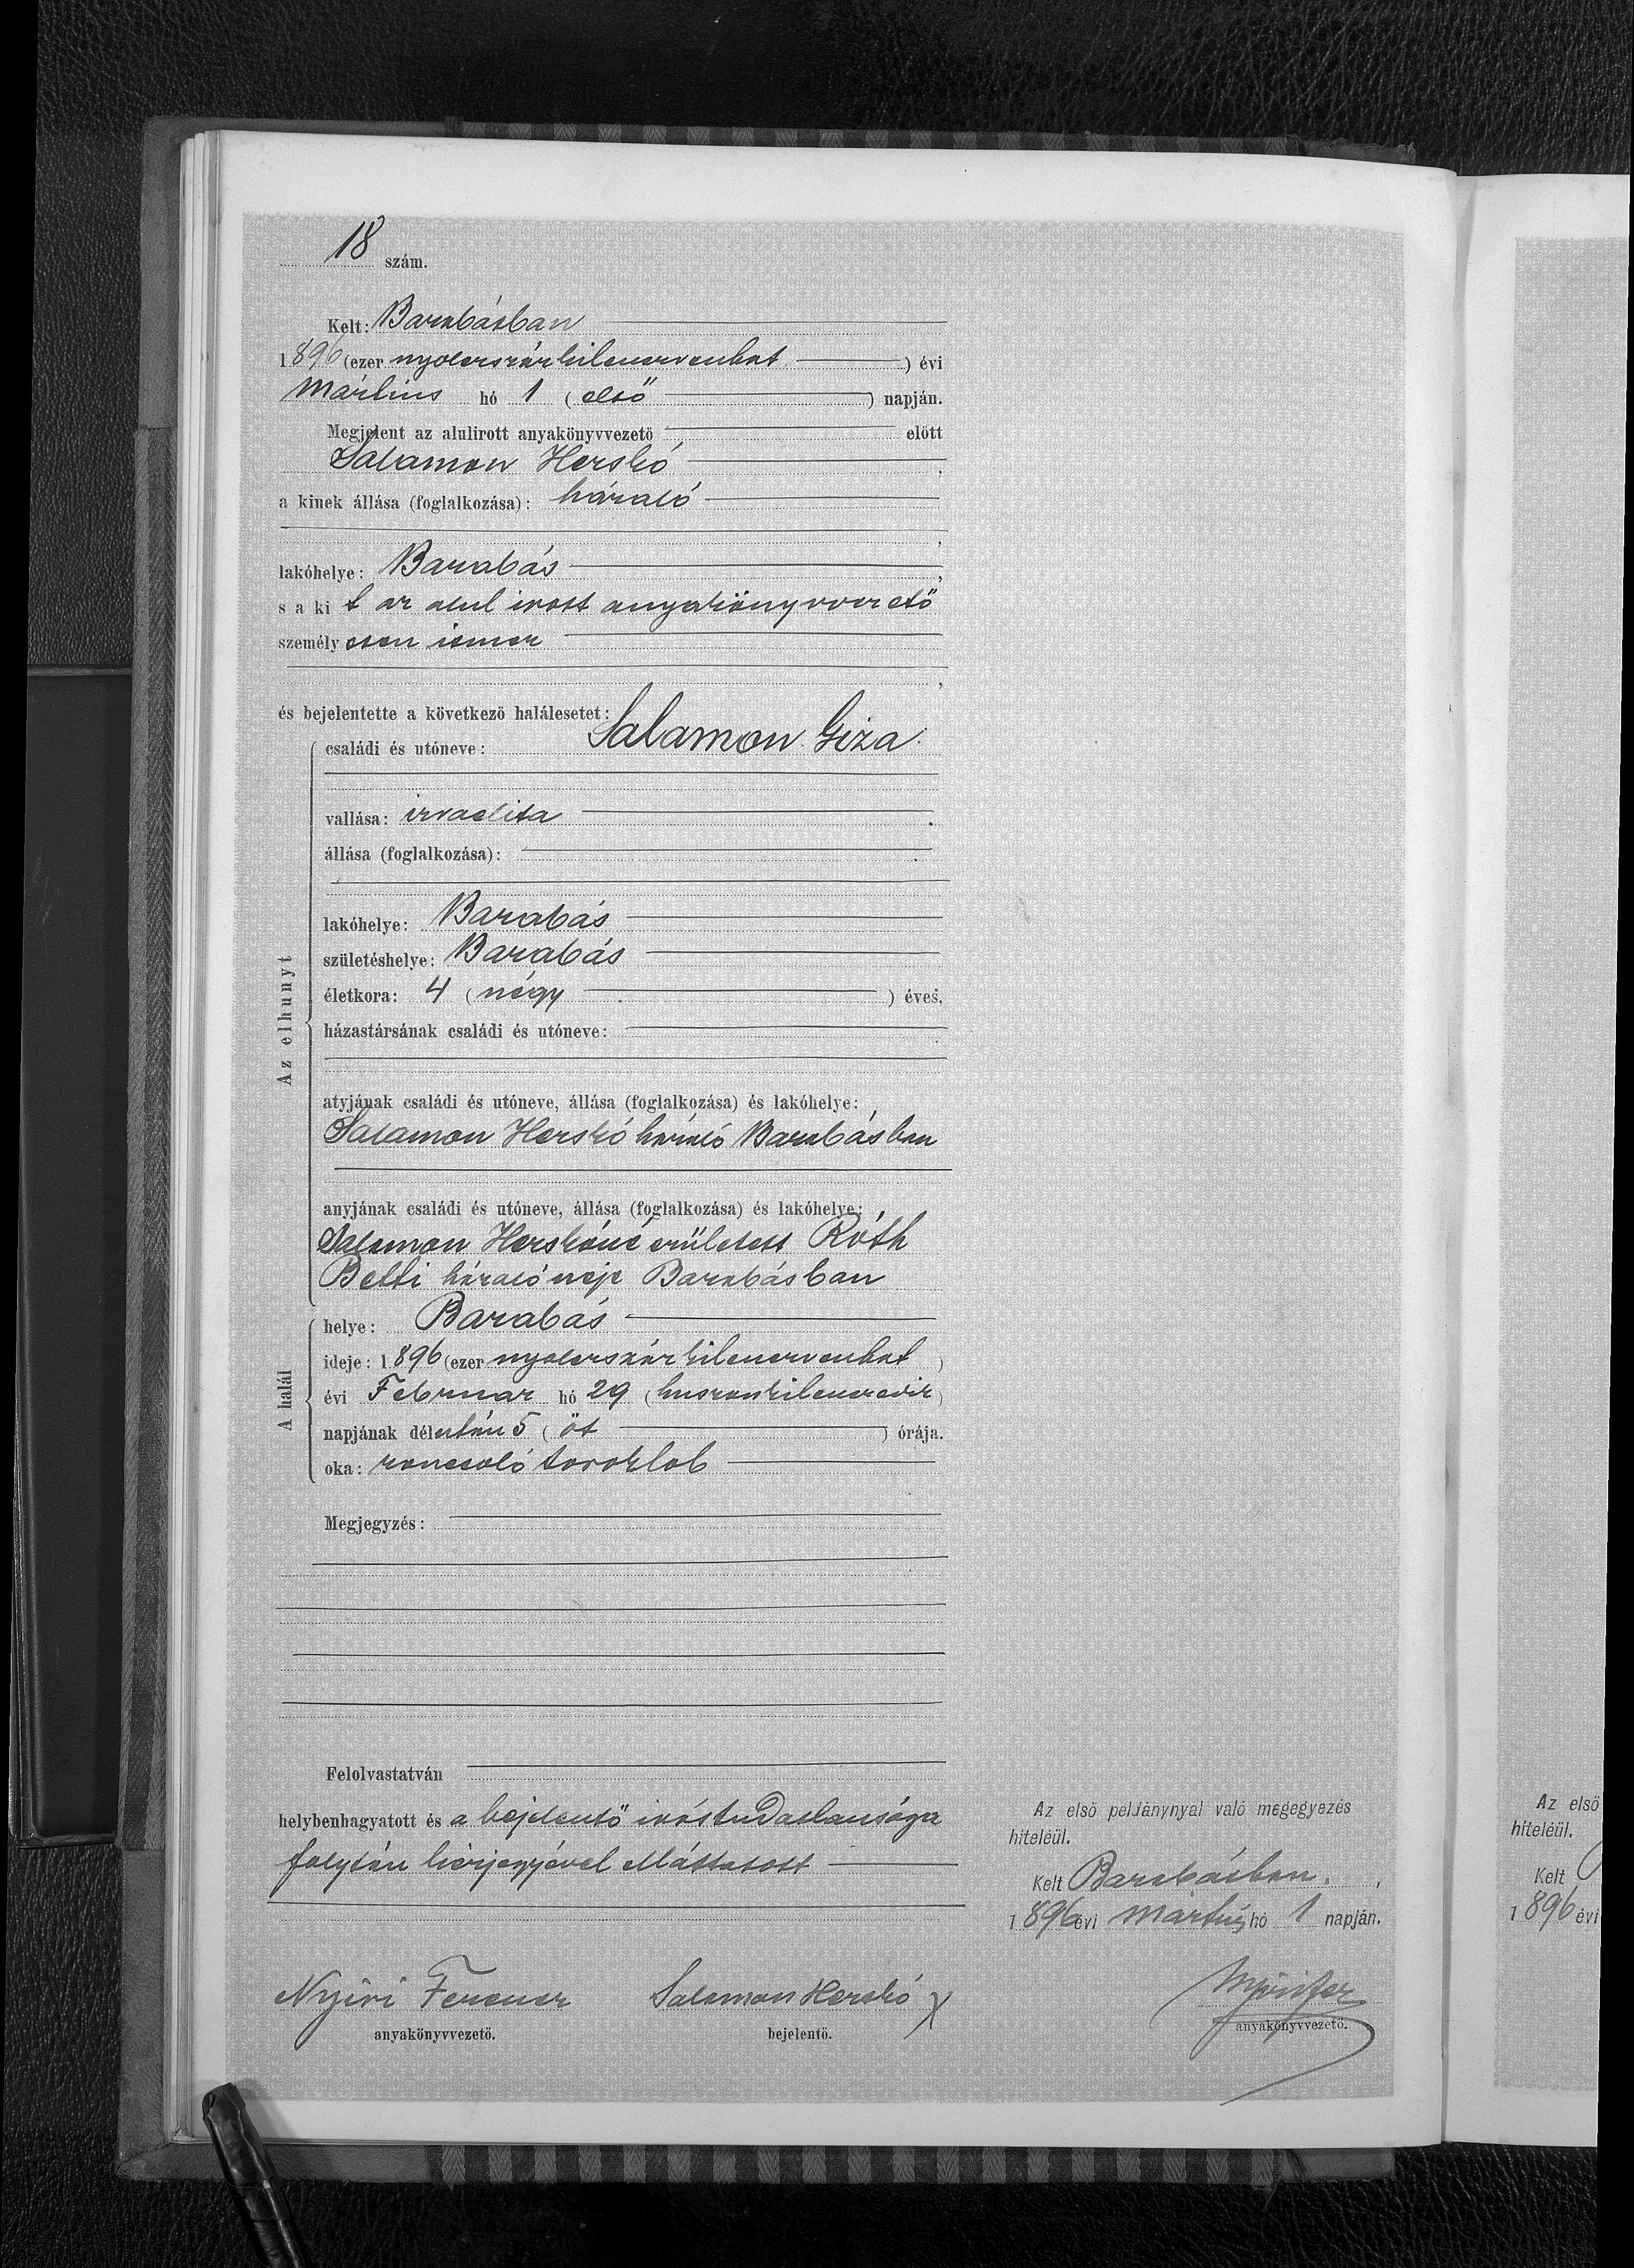 18 szám.
Kelt: Barabásban
1896 (ezer nyolcszázkilencvenhat) évi
Mártius hó 1 (első) napján.
Megjelent az alulirott anyakönyvvezető előtt
Salamon Herskó
a kinek állása (foglalkozása): házaló
lakóhelye: Barabás,
s a kit az alul irott anyakönyvvezető
személyesen ismer
és bejelentette a következő halálesetet:
Az elhunyt
családi és utóneve: Salamon Giza
vallása: izraelita
állása (foglalkozása):
lakóhelye: Barabás
születéshelye: Barabás
életkora: 4 (négy) éves,
házastársának családi és utóneve:
atyjának családi és utóneve, állása (foglalkozása) és lakóhelye:
Salamon Herskó házaló Barabásban
anyjának családi és utóneve, állása (foglalkozása) és lakóhelye:
Salamon Herskóné született Róth
Betti házaló neje Barabásban
A halál
helye: Barabás
ideje: 1896 (ezer nyolcszázkilencvenhat)
évi Februar hó 29 (huszonkilencedik)
napjának délután 5 (öt) órája.
oka: roncsoló toroklob
Megjegyzés:
Felolvastatván
helybenhagyatott és a bejelentő irástudatlansága
folytán kézjegyével elláttatott
Nyiri Ferencz
anyakönyvvezető.
Salamon Herskó X
bejelentő.
Az első példánynyal való megegyezés
hiteléül.
Kelt Barabásban.
1896 évi Mártius hó 1 napján.
anyakönyvvezető.
Az első
hiteléül.
Kelt
1896 évi